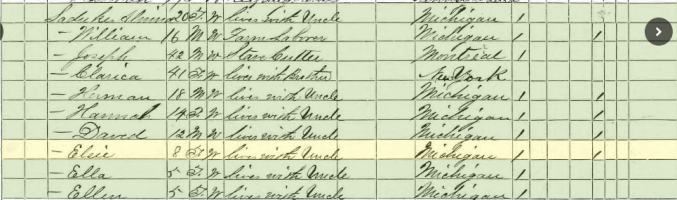 20 F W lives with Uncle Michigan 1
— William 16 M W Farm Laborer Michigan 1 1
— Joseph 42 M W Stave Cutter Montreal 1
— Clarica 41 F W lives with Brother New York 1
— Herman 18 M W lives with Uncle Michigan 1 1
— Hannah 14 F W lives with Uncle Michigan 1 1
— David 12 M W lives with Uncle Michigan 1 1
— Elsie 8 F W lives with Uncle Michigan 1 1
— Ella 5 F W lives with Uncle Michigan 1
— Ellen 5 F W lives with Uncle Michigan 1